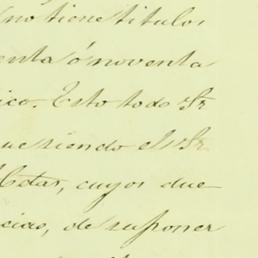 no tiene titulos
enta ó noventa
ico. Esto todo Sr
ueriendo el Sr.
cuyos due-
cias, de suponer